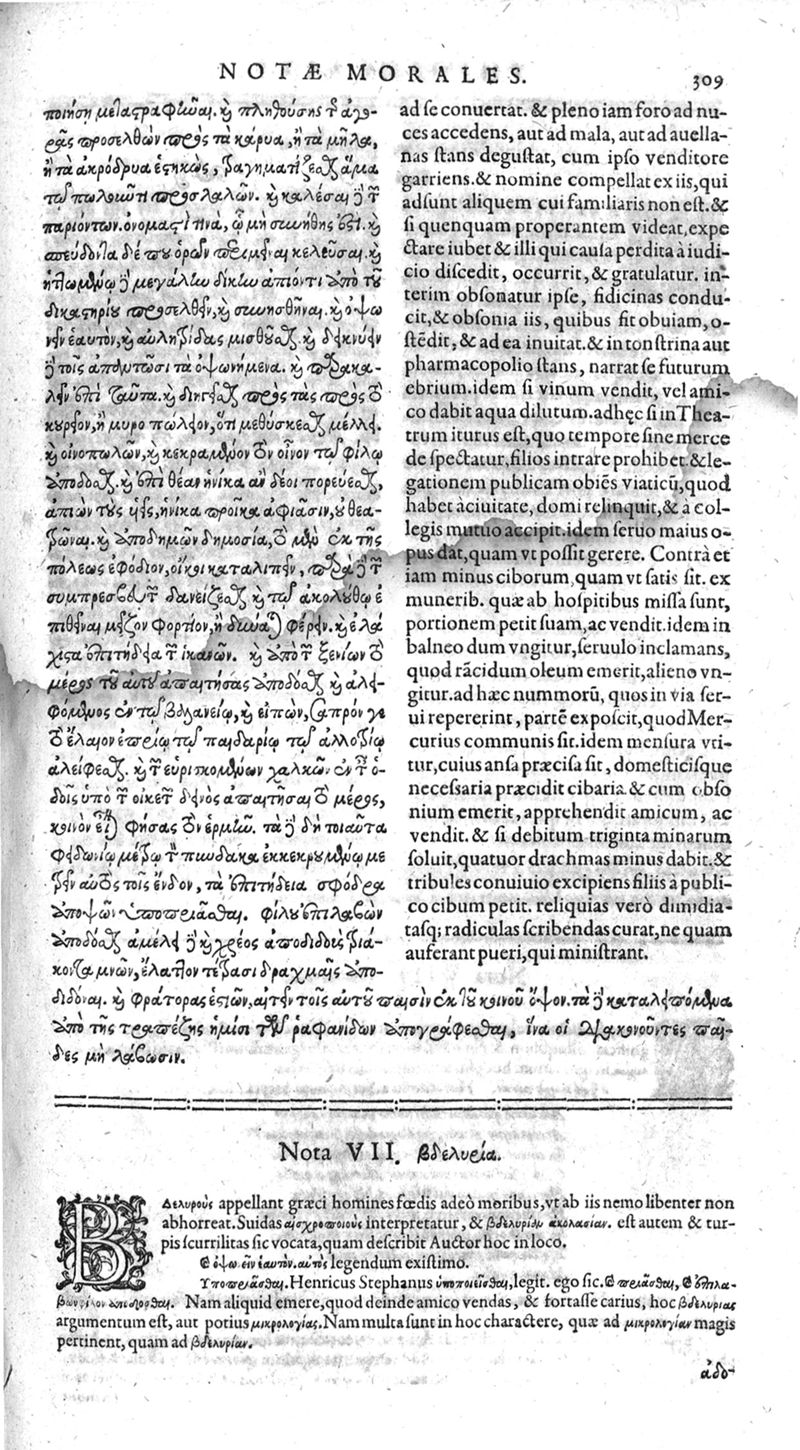 NOTÆ MORALES.
309
ποιήσῃ μεταστραφῆναι. καὶ πληθούσης τῆς ἀγο-
ρᾶς προσελθὼν πρὸς τὰ κάρυα, ἢ τὰ μῆλα,
ἢ τὰ ἀκρόδρυα ἑστηκὼς, τραγηματίζεσθαι ἅμα
τῷ πωλοῦντι προσλαλῶν. καὶ καλέσαι δὲ τῶν
παριόντων ὀνομαστί τινα, ᾧ μὴ συνήθης ἐστί. καὶ
σπεύδοντα δέ που ὁρῶν περιμεῖναι κελεῦσαι. καὶ
ἡττωμένῳ δὲ μεγάλην δίκην ἀπιόντι ἀπὸ τοῦ
δικαστηρίου προσελθεῖν, καὶ συνησθῆναι. καὶ ὀψω
νεῖν ἑαυτὸν, καὶ αὐλητρίδας μισθοῦσθαι. καὶ δεικνύειν
δὲ τοῖς ἀπαντῶσι τὰ ὀψωνημένα. καὶ παρακα-
λεῖν ἐπὶ ταῦτα. καὶ διηγεῖσθαι προσστὰς πρὸς τὸ
κουρεῖον, ἢ μυροπώλιον, ὅτι μεθύσκεσθαι μέλλει.
καὶ οἰνοπωλῶν, καὶ κεκραμένον τὸν οἶνον τῷ φίλῳ
ἀποδόσθαι. καὶ ἐπὶ θέαν ἡνίκα ἂν δέοι πορεύεσθαι,
ἀπιὼν τοὺς υἱεῖς, ἡνίκα προῖκα ἀφιᾶσιν, οἱ θεα-
τρῶναι. καὶ ἀποδημῶν δημοσίᾳ, τὸ μὲν ἐκ τῆς
πόλεως ἐφόδιον, οἴκοι καταλιπεῖν, παρὰ δὲ τῶν
συμπρεσβευτῶν δανείζεσθαι. καὶ τῷ ἀκολούθῳ ἐ
πιθεῖναι μεῖζον φορτίον, ἢ δύναται φέρειν. καὶ ἐλά
χιστα ἐπιτήδεια τῶν ἱκανῶν. καὶ ἀπὸ τῶν ξενίων τὸ
μέρος τοῦ αὐτοῦ ἀπαιτήσας ἀποδόσθαι. καὶ ἀλει-
φόμενος ἐν τῷ βαλανείῳ, καὶ εἰπὼν, σαπρόν γε
τὸ ἔλαιον ἐπρίω τῷ παιδαρίῳ τῷ ἀλλοτρίῳ
ἀλείφεσθαι. καὶ τῶν εὑρισκομένων χαλκῶν ἐν ταῖς ὁ-
δοῖς ὑπὸ τῶν οἰκετῶν δεινὸς ἀπαιτῆσαι τὸ μέρος,
κοινὸν εἶναι φήσας τὸν ἑρμῆν. τὰ δὲ δὴ τοιαῦτα
φειδωνίῳ μέτρῳ τὸν πύνδακα ἐκκεκρουμένῳ με
τρεῖν αὐτὸς τοῖς ἔνδον, τὰ ἐπιτήδεια σφόδρα
ἀποψῶν ὑποπρίασθαι. φίλου ἐπιλαβὼν
ἀποδόσθαι ἀμέλει δὲ καὶ χρέος ἀποδιδοὺς τριά-
κοντα μνῶν, ἔλαττον τέτρασι δραχμαῖς ἀπο-
διδόναι. καὶ φράτορας ἑστιῶν, αἰτεῖν τοῖς αὐτοῦ παισὶν ἐκ τοῦ κοινοῦ ὄψον. τὰ δὲ καταλειπόμενα
ἀπὸ τῆς τραπέζης ἡμίση τῶν ῥαφανίδων ἀπογράφεσθαι, ἵνα οἱ διακονοῦντες παῖ-
δες μὴ λάβωσιν.
ad se conuertat. & pleno iam foro ad nu-
ces accedens, aut ad mala, aut ad auella-
nas stans degustat, cum ipso venditore
garriens. & nomine compellat ex iis, qui
adsunt aliquem cui familiaris non est. &
si quenquam properantem videat, expe
ctare iubet & illi qui causa perdita à iudi-
cio discedit, occurrit, & gratulatur. in-
terim obsonatur ipse, fidicinas condu-
cit, & obsonia iis, quibus fit obuiam, o-
stēdit, & ad ea inuitat. & in tonstrina aut
pharmacopolio stans, narrat se futurum
ebrium. idem si vinum vendit, vel ami-
co dabit aqua dilutum. adhęc si in Thea-
trum iturus est, quo tempore sine merce
de spectatur, filios intrare prohibet. & le-
gationem publicam obiēs viaticū, quod
habet à ciuitate, domi relinquit, & à col-
legis mutuo accipit. idem seruo maius o-
pus dat, quam vt possit gerere. Contrà et
iam minus ciborum, quam vt satis sit. ex
munerib. quæ ab hospitibus missa sunt,
portionem petit suam, ac vendit. idem in
balneo dum vngitur, seruulo inclamans,
quod rācidum oleum emerit, alieno vn-
gitur. ad hæc nummorū, quos in via ser-
ui repererint, partē exposcit, quod Mer-
curius communis sit. idem mensura vti-
tur, cuius ansa præcisa sit, domesticisque
necessaria præcidit cibaria. & cum obso
nium emerit, apprehendit amicum, ac
vendit. & si debitum triginta minarum
soluit, quatuor drachmas minus dabit. &
tribules conuiuio excipiens filiis à publi-
co cibum petit. reliquias verò dimidia-
tasq; radiculas scribendas curat, ne quam
auferant pueri, qui ministrant.
Nota VII. βδελυρία.
Βδελυροὺς appellant græci homines fœdis adeò moribus, vt ab iis nemo libenter non
abhorreat. Suidas αἰσχροποιοὺς interpretatur, & βδελυρίαν ἀκολασίαν. est autem & tur-
pis scurrilitas sic vocata, quam describit Auctor hoc in loco.
Καὶ ὀψωνεῖν ἑαυτὸν. αὐτὸς legendum existimo.
Ὑποπρίασθαι. Henricus Stephanus ὑποποιεῖσθαι, legit. ego sic. καὶ πρίασθαι, καὶ ἐπιλα-
βὼν φίλον ἀποδόσθαι. Nam aliquid emere, quod deinde amico vendas, & fortasse carius, hoc βδελυρίας
argumentum est, aut potius μικρολογίας. Nam multa sunt in hoc charactere, quæ ad μικρολογίαν magis
pertinent, quam ad βδελυρίαν.
ἀδο-